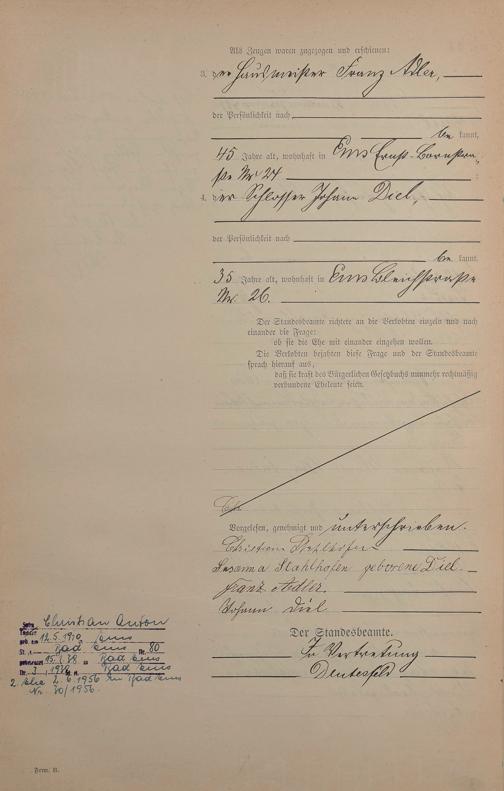 Als Zeugen waren zugezogen und erschienen:
3. der Hausmeister Franz Adler,
der Persönlichkeit nach
be kannt,
45 Jahre alt, wohnhaft in Ems Ernst-Bornstra-
ße Nr 24
4. der Schlosser Johann Diel,
der Persönlichkeit nach
be kannt,
35 Jahre alt, wohnhaft in Ems Bleichstraße
Nr. 26.
Der Standesbeamte richtete an die Verlobten einzeln und nach
einander die Frage:
ob sie die Ehe mit einander eingehen wollen.
Die Verlobten bejahten diese Frage und der Standesbeamte
sprach hierauf aus,
daß sie kraft des Bürgerlichen Gesetzbuchs nunmehr rechtmäßig
verbundene Eheleute seien.
Vorgelesen, genehmigt und unterschrieben.
Christian Stahlhofen
Susanna Stahlhofen geborene Diel.
Franz Adler.
Johann Diel
Der Standesbeamte.
In Vertretung
Deutesfeld
Christian Anton
geb. am 12.5.1910 Ems
St. A. Bad Ems Nr. 80
15.1.38 in Bad Ems
Nr. 3 1938 Bad Ems
2. Ehe 2.6.1956 in Bad Ems
Nr. 30/1956.
Form. B.